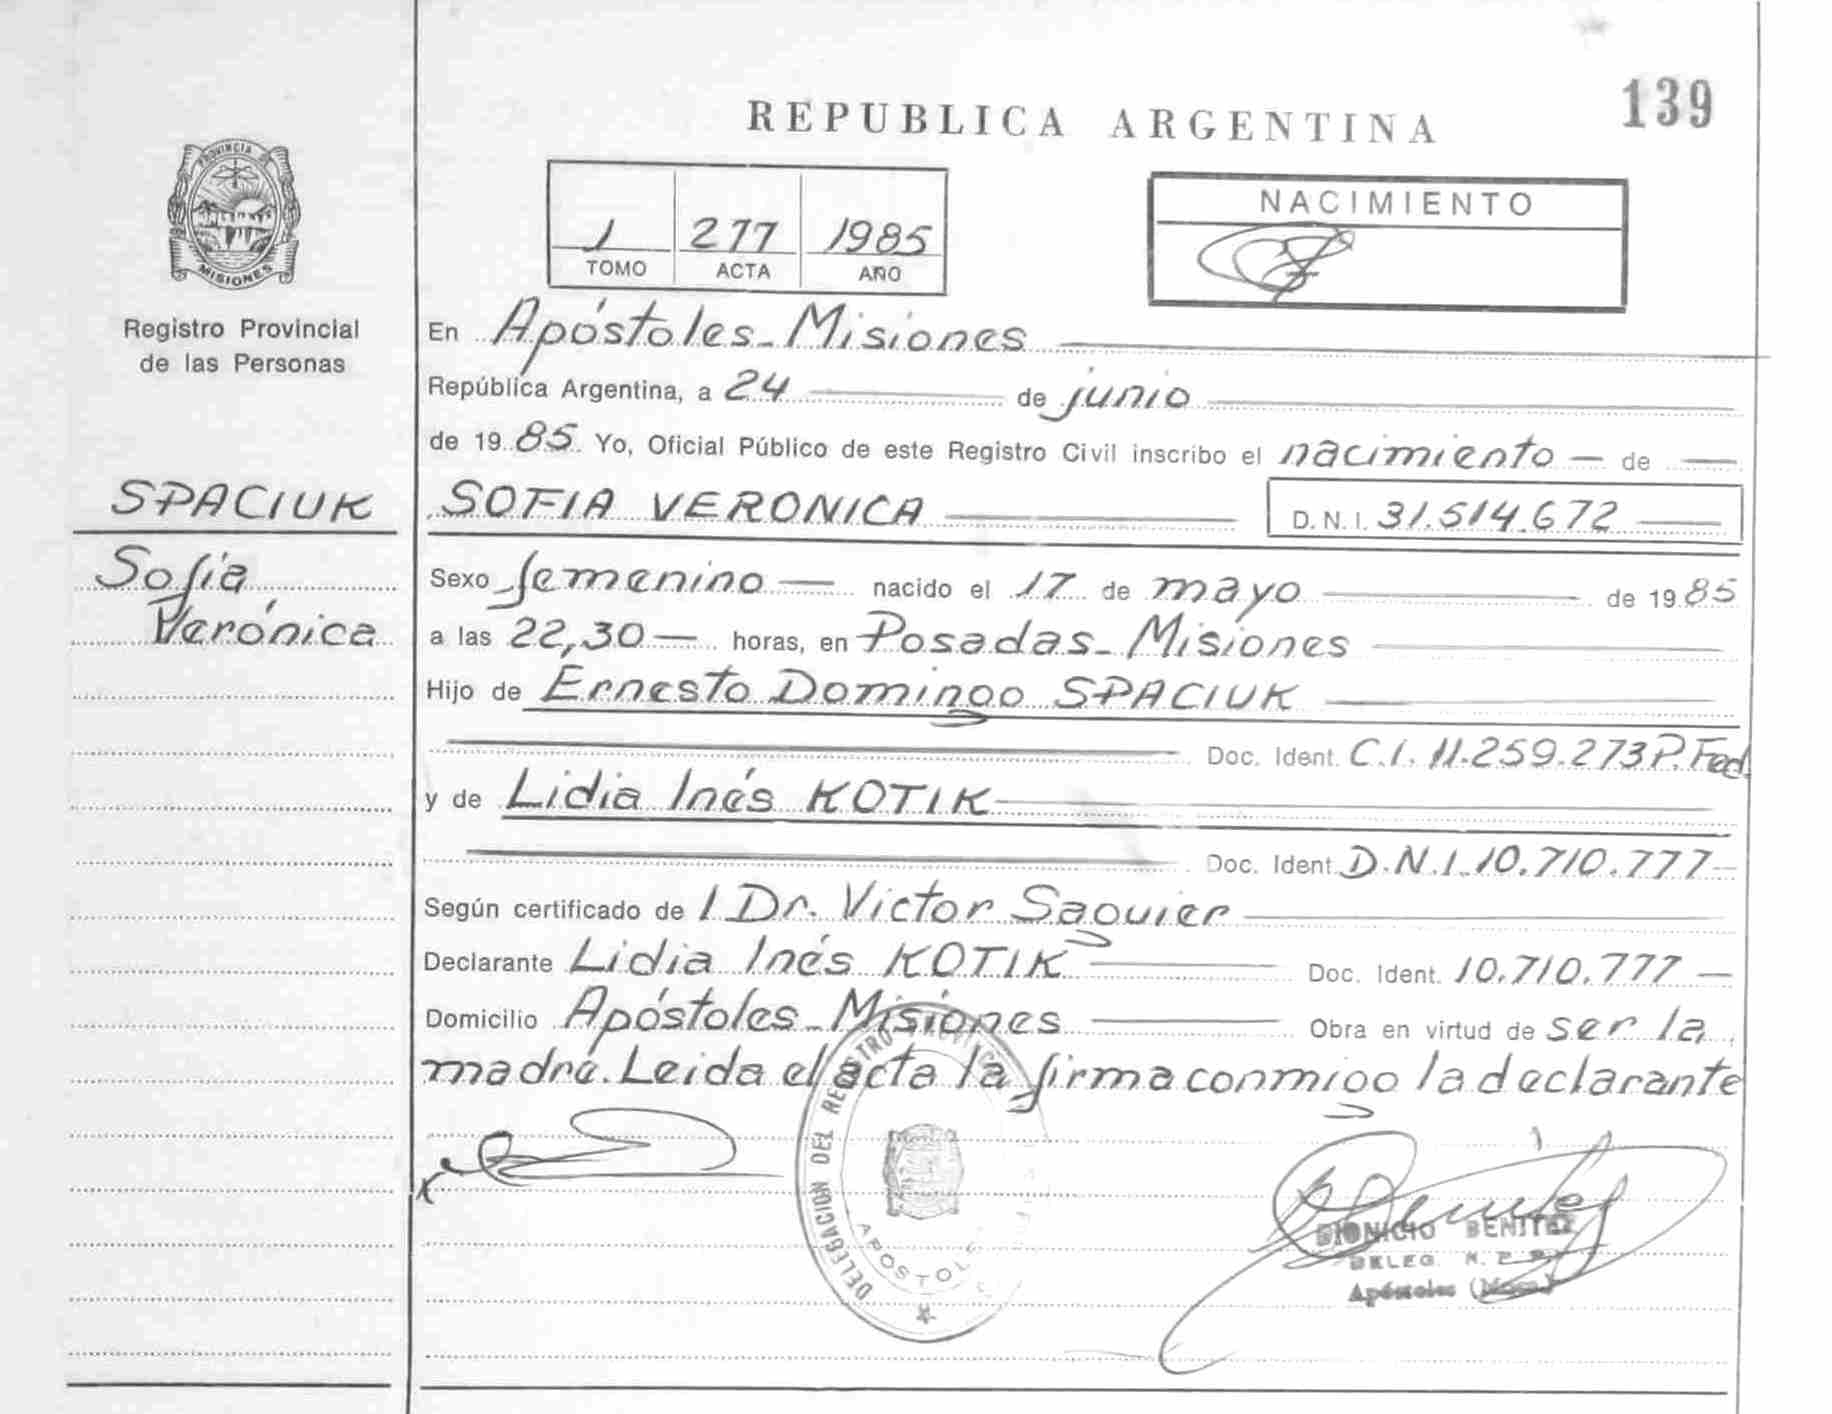 139
REPUBLICA ARGENTINA
PROVINCIA D
MISIONES
Registro Provincial
de las Personas
1 277 1985
TOMO ACTA AÑO
NACIMIENTO
En Apóstoles - Misiones
República Argentina, a 24 de junio
de 1985 Yo, Oficial Público de este Registro Civil inscribo el nacimiento — de —
SPACIUK
Sofía
Verónica
SOFIA VERONICA D.N.I. 31.514.672
Sexo femenino — nacido el 17 de mayo de 1985
a las 22,30 — horas, en Posadas - Misiones
Hijo de Ernesto Domingo SPACIUK
Doc. Ident. C.I. 11.259.273 P. Fed.
y de Lidia Inés KOTIK
Doc. Ident. D.N.I. 10.710.777
Según certificado de l Dr. Victor Saguier
Declarante Lidia Inés KOTIK Doc. Ident. 10.710.777 —
Domicilio Apóstoles - Misiones Obra en virtud de ser la
madre. Leida el acta la firma conmigo la declarante
DELEGACION DEL REGISTRO PROVINCIAL
APOSTOLES
DIONICIO BENITEZ
DELEG.
Apóstoles (Mnes.)